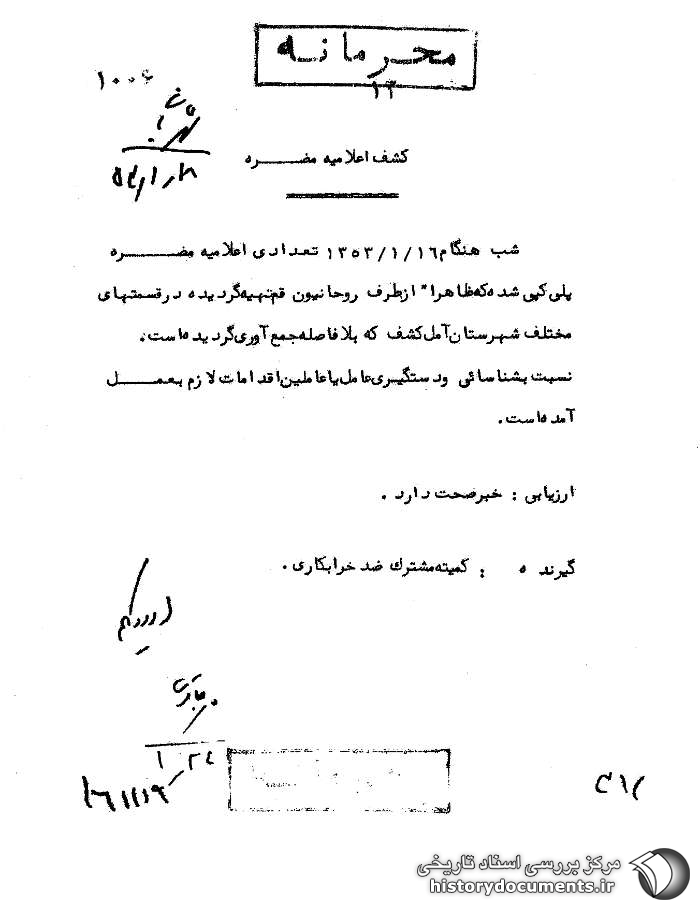 محرمانه
۱۳
کشف اعلامیه مضره
شب هنگام ۱۳۵۳/۱/۱۶ تعدادی اعلامیه مضره
پلی کپی شده که ظاهرا" از طرف روحانیون قم تهیه گردیده در قسمتهای
مختلف شهرستان آمل کشف که بلافاصله جمع آوری گردیده است.
نسبت بشناسائی ودستگیری عامل یا عاملین اقدامات لازم بعمل
آمده است.
ارزیابی : خبر صحت دارد .
گیرنده : کمیته مشترک ضد خرابکاری .
مرکز بررسی اسناد تاریخی
historydocuments.ir